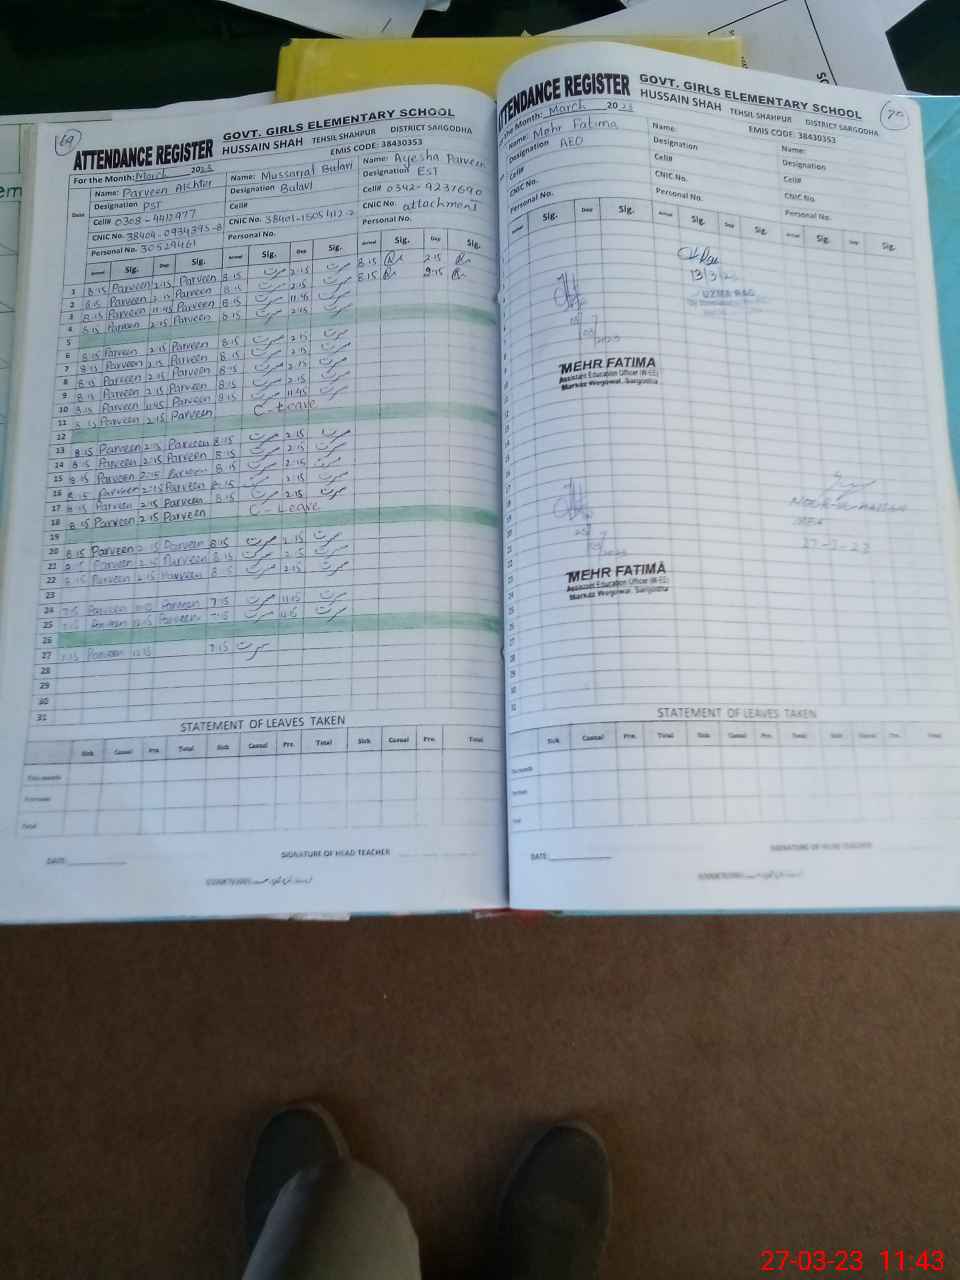 69
ATTENDANCE REGISTER
GOVT. GIRLS ELEMENTARY SCHOOL
HUSSAIN SHAH TEHSIL SHAHPUR DISTRICT SARGODHA
EMIS CODE: 38430353
For the Month: March 2023
Name: Parveen Akhter Name: Mussarat Bulavi Name: Ayesha Parveen
Designation PST Designation Bulavi Designation EST
Cell# 0308-4412977 Cell# Cell# 0342-9237690
CNIC No. 38404-0934395-8 CNIC No. 38401-1505412-2 CNIC No. attachment
Personal No. 30529461 Personal No. Personal No.
Date Arrival Sig. Dep Sig. Arrival Sig. Dep Sig. Arrival Sig. Dep Sig.
1 8:15 Parveen 2:15 Parveen 8:15 مسرت 2:15 مسرت 8:15 2:15
2 8:15 Parveen 2:15 Parveen 8:15 مسرت 2:15 مسرت 8:15 2:15
3 8:15 Parveen 11:45 Parveen 8:15 مسرت 11:45 مسرت
4 8:15 Parveen 2:15 Parveen 8:15 مسرت 2:15 مسرت
5
6 8:15 Parveen 2:15 Parveen 8:15 مسرت 2:15 مسرت
7 8:15 Parveen 2:15 Parveen 8:15 مسرت 2:15 مسرت
8 8:15 Parveen 2:15 Parveen 8:15 مسرت 2:15 مسرت
9 8:15 Parveen 2:15 Parveen 8:15 مسرت 2:15 مسرت
10 8:15 Parveen 11:45 Parveen 8:15 مسرت 11:45 مسرت
11 8:15 Parveen 2:15 Parveen C-Leave
12
13 8:15 Parveen 2:15 Parveen 8:15 مسرت 2:15 مسرت
14 8:15 Parveen 2:15 Parveen 8:15 مسرت 2:15 مسرت
15 8:15 Parveen 2:15 Parveen 8:15 مسرت 2:15 مسرت
16 8:15 Parveen 2:15 Parveen 8:15 مسرت 2:15 مسرت
17 8:15 Parveen 2:15 Parveen 8:15 مسرت 2:15 مسرت
18 8:15 Parveen 2:15 Parveen C-Leave
19
20 8:15 Parveen 2:15 Parveen 8:15 مسرت 2:15 مسرت
21 8:15 Parveen 2:15 Parveen 8:15 مسرت 2:15 مسرت
22 8:15 Parveen 2:15 Parveen 8:15 مسرت 2:15 مسرت
23
24 7:15 Parveen Parveen 7:15 مسرت 11:15 مسرت
25 7:15 Parveen 12:15 Parveen 7:15 مسرت مسرت
26
27 7:15 Parveen 12:15 7:15 مسرت
28
29
30
31
STATEMENT OF LEAVES TAKEN
Sick Casual Pre. Total Sick Casual Pre. Total Sick Casual Pre. Total
This month
Previous
Total
DATE: SIGNATURE OF HEAD TEACHER
70
ATTENDANCE REGISTER
GOVT. GIRLS ELEMENTARY SCHOOL
HUSSAIN SHAH TEHSIL SHAHPUR DISTRICT SARGODHA
EMIS CODE: 38430353
For the Month: March 2023
Name: Mehr Fatima Name: Name:
Designation AEO Designation Designation
Cell# Cell# Cell#
CNIC No. CNIC No. CNIC No.
Personal No. Personal No. Personal No.
Sig. Dep Sig. Arrival Sig. Dep Sig. Arrival Sig. Dep Sig.
13/3/23
MEHR FATIMA
Assistant Education Officer (W-EE)
Markaz Wegowal, Sargodha
27-3-23
MEHR FATIMA
Assistant Education Officer (W-EE)
Markaz Wegowal, Sargodha
STATEMENT OF LEAVES TAKEN
Sick Casual Pre. Total Sick Casual Pre. Total Sick Casual Pre. Total
This month
Previous
Total
DATE: SIGNATURE OF HEAD TEACHER
27-03-23 11:43